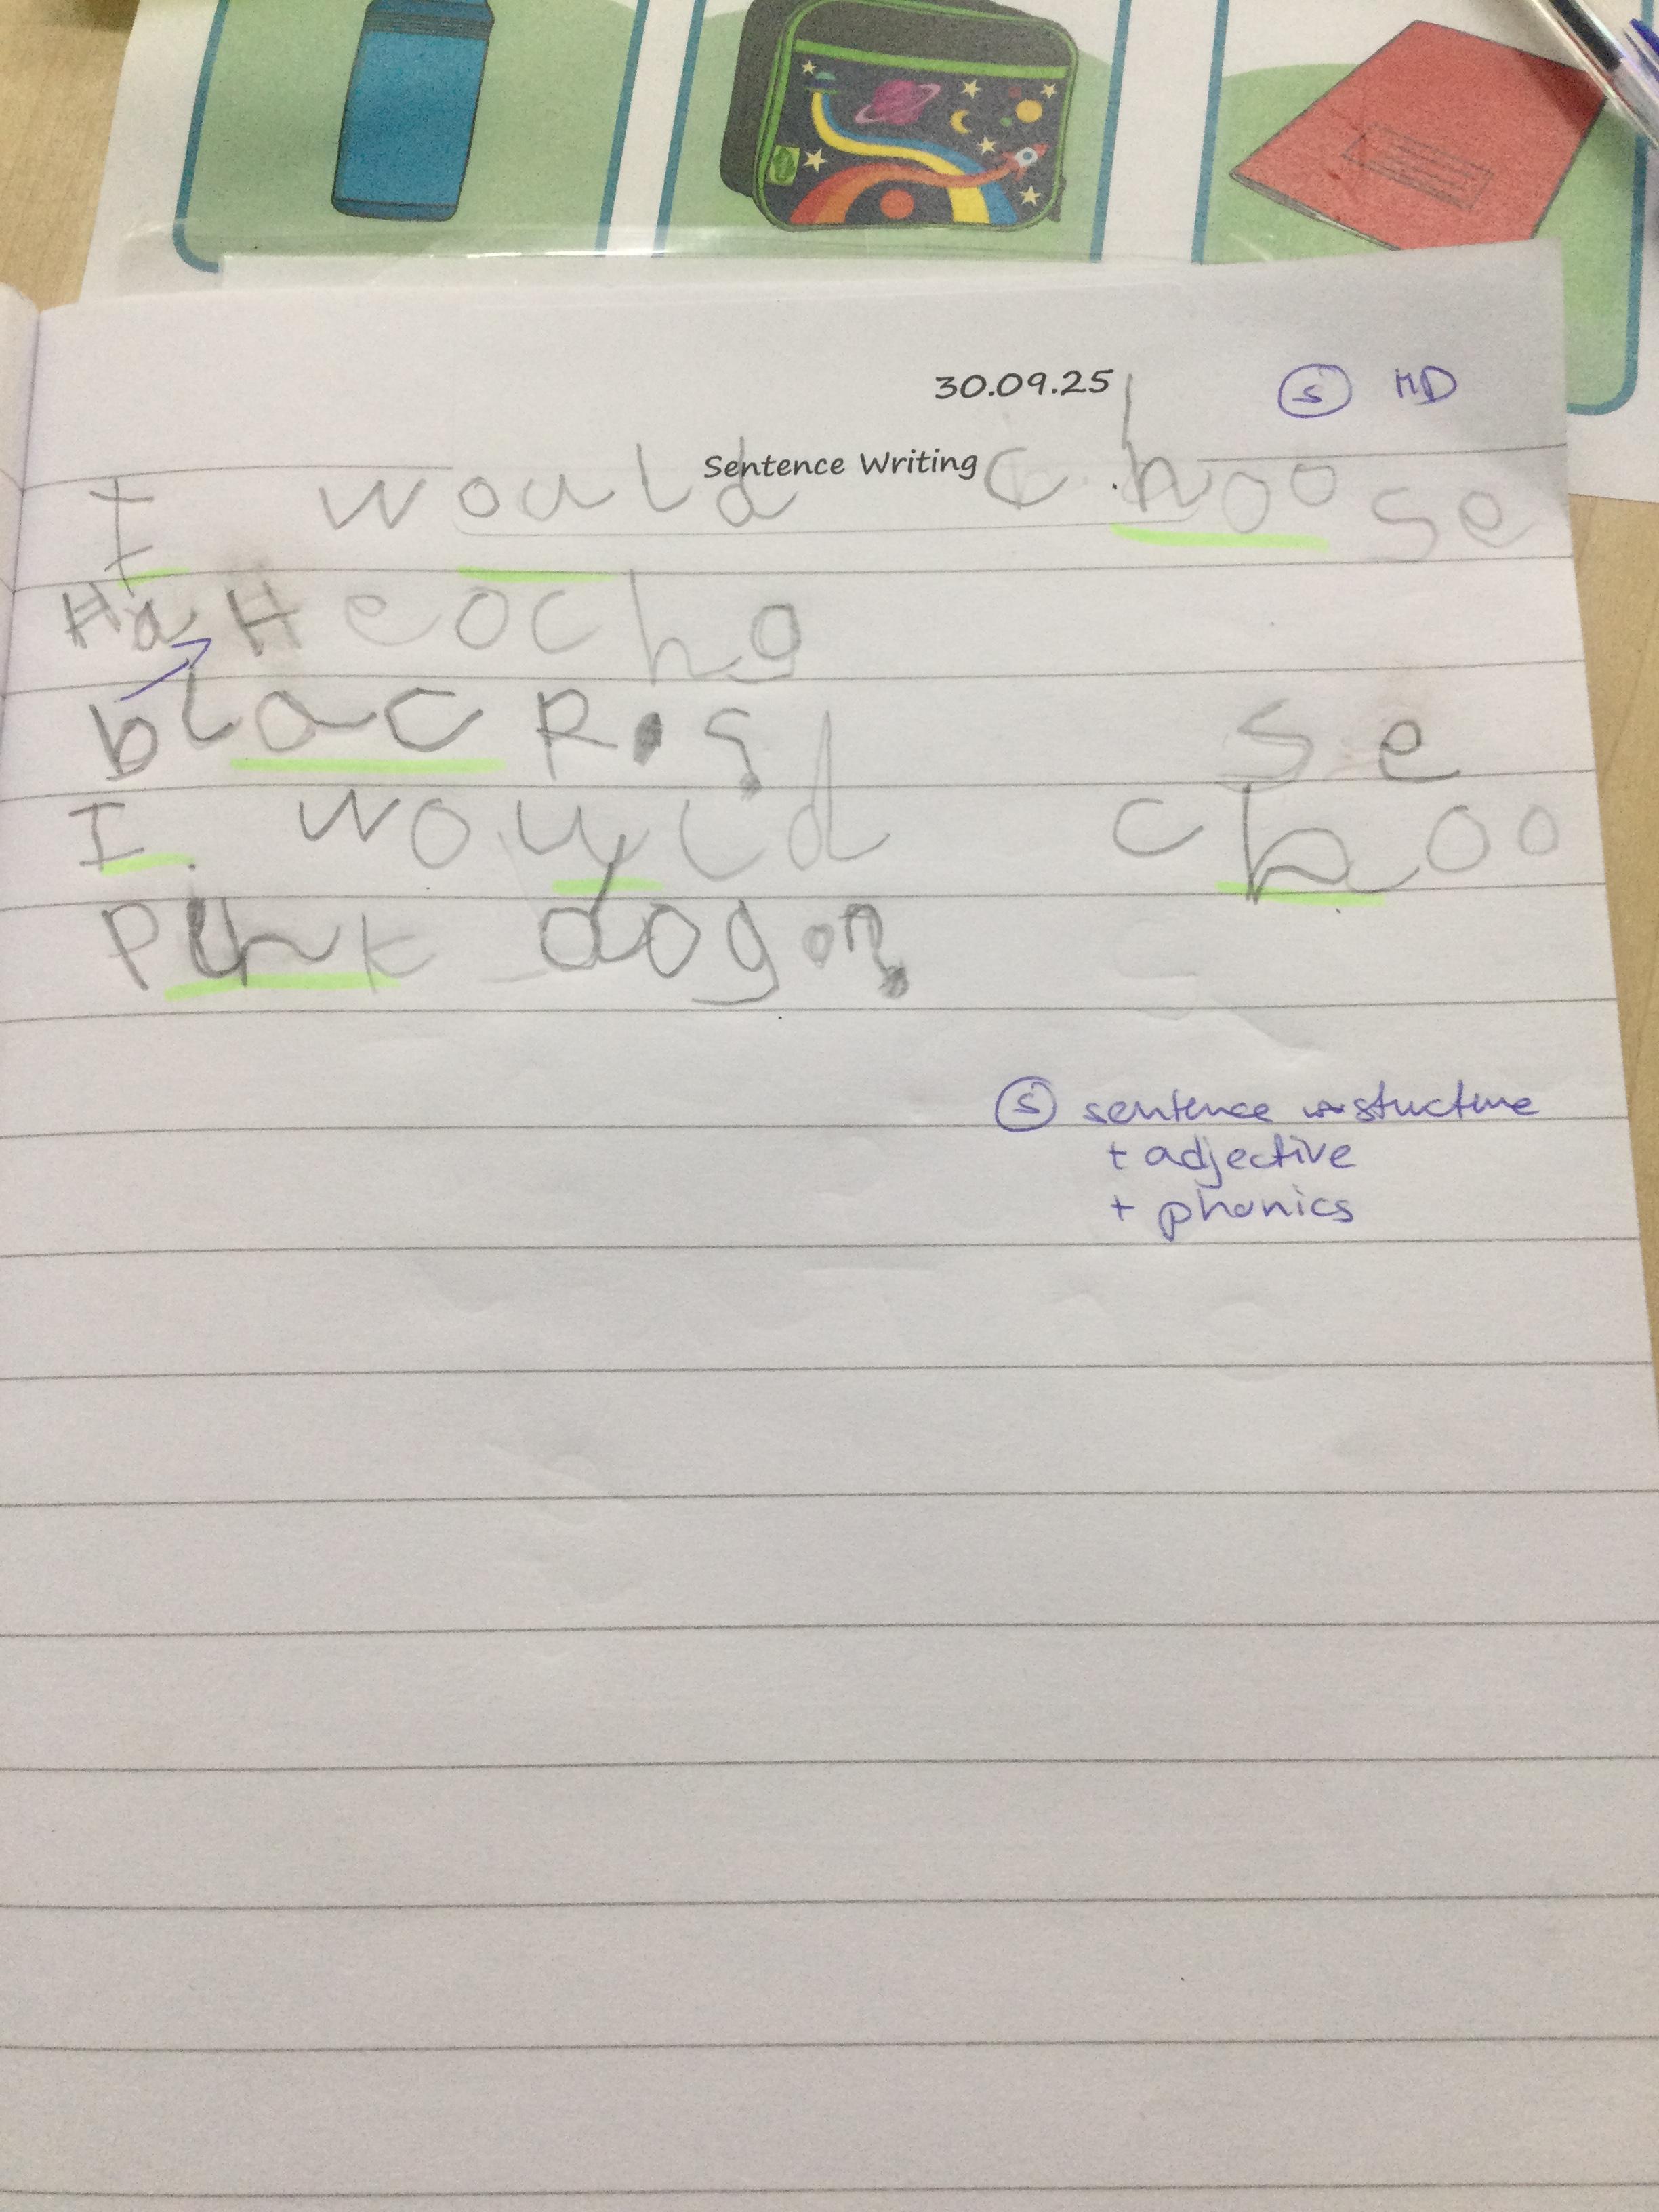 30.09.25 Ⓢ MD
Sentence Writing
I would choose
Ha Heocha
blac
I would choo
se
Pink dogon.
Ⓢ sentence structure
+ adjective
+ phonics